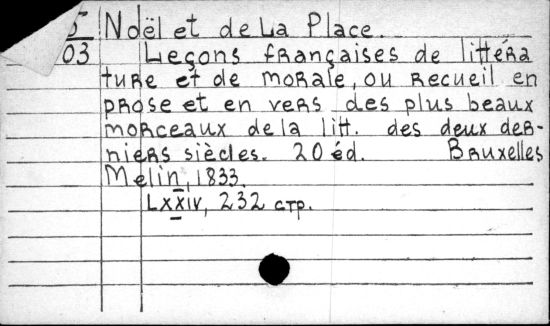 5 Noël et de La Place.
03 Leçons françaises de littéra
ture et de morale, ou recueil en
prose et en vers des plus beaux
morceaux de la litt. des deux der-
niers siècles. 20 éd. Bruxelles
Melin, 1833.
LXXIV, 232 стр.